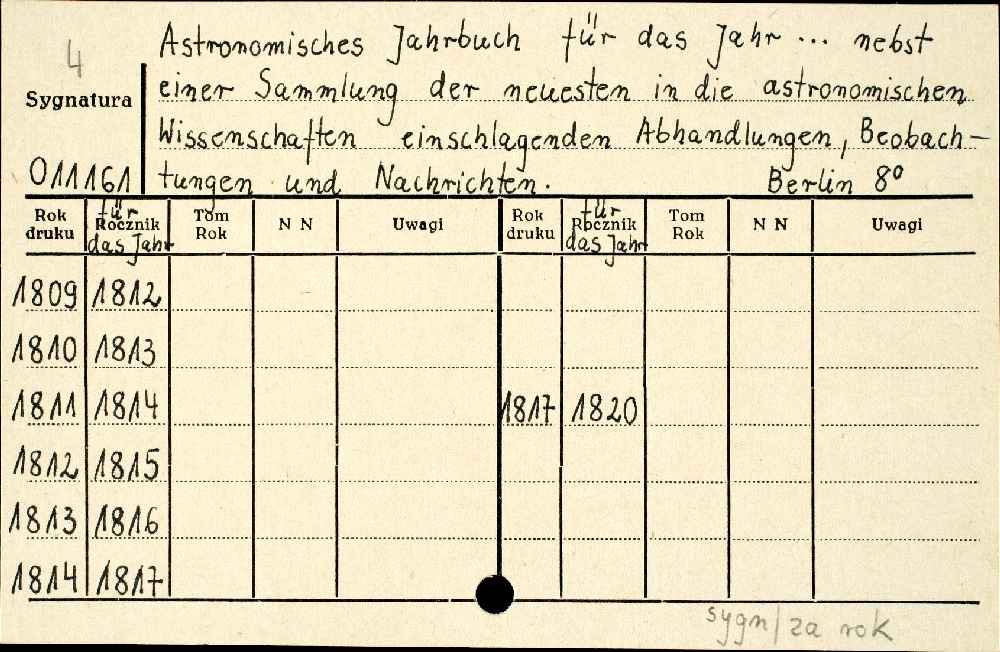 4
Astronomisches Jahrbuch für das Jahr ... nebst
einer Sammlung der neuesten in die astronomischen
Wissenschaften einschlagenden Abhandlungen, Beobach-
tungen und Nachrichten. Berlin 8°
Sygnatura
011161
Rok druku | für Rocznik das Jahr | Tom Rok | N N | Uwagi | Rok druku | für Rocznik das Jahr | Tom Rok | N N | Uwagi
1809 1812
1810 1813
1811 1814 1817 1820
1812 1815
1813 1816
1814 1817
sygn/za rok